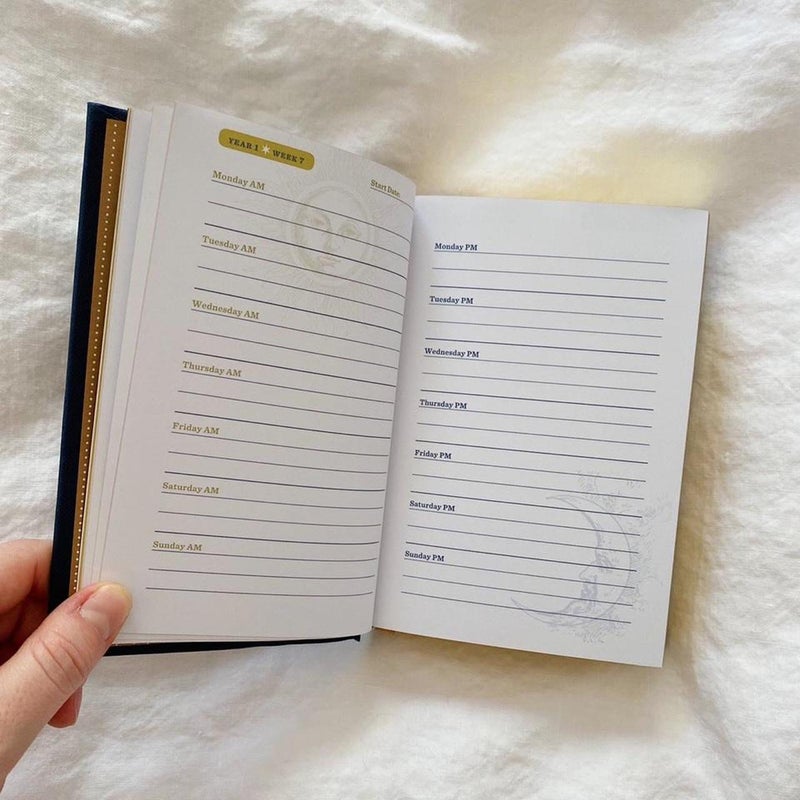 YEAR 1 ✶ WEEK 7
Monday AM
Start Date:
Tuesday AM
Wednesday AM
Thursday AM
Friday AM
Saturday AM
Sunday AM
Monday PM
Tuesday PM
Wednesday PM
Thursday PM
Friday PM
Saturday PM
Sunday PM